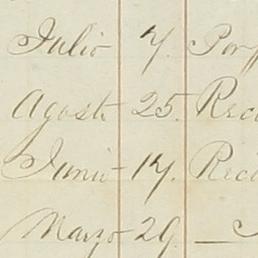 Julio 7. Por
Agosto 25. Reci
Junio 17. Reci
Marzo 29. —